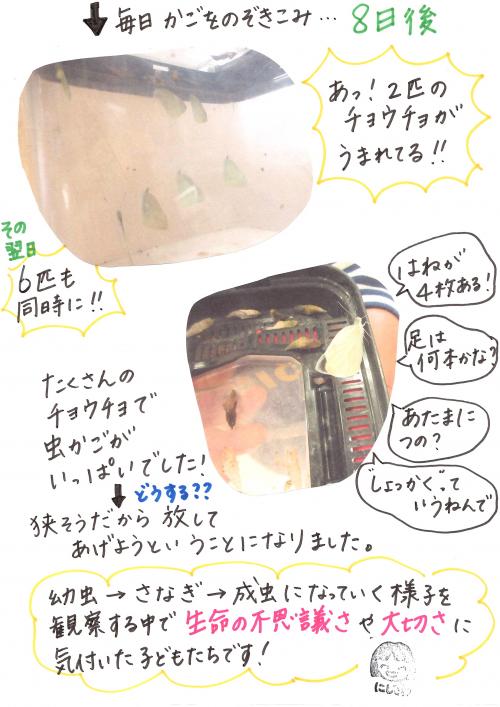 毎日 かごをのぞきこみ… 8日後
あっ！2匹の
チョウチョが
うまれてる!!
その
翌日
6匹も
同時に!!
はねが
4枚ある!
足は
何本かな?
あたまに
つの?
しょっかくって
いうねんで
たくさんの
チョウチョで
虫かごが
いっぱいでした!
どうする??
狭そうだから 放して
あげようということになりました。
幼虫→さなぎ→成虫になっていく様子を
観察する中で生命の不思議さや大切さに
気付いた子どもたちです!